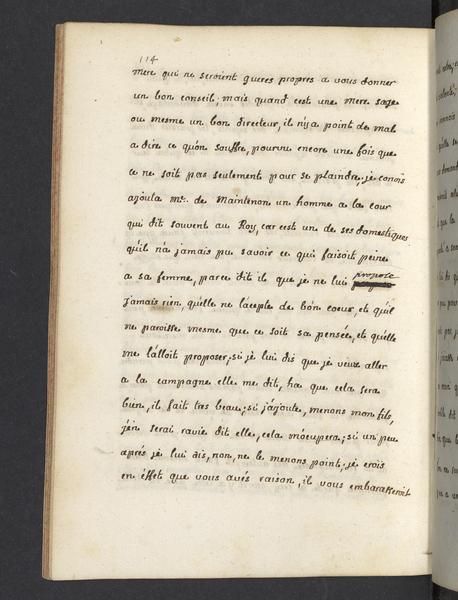 114
mere qui ne seroient gueres propres a vous donner
un bon conseil; mais quand c'est une mere sage
ou mesme un bon directeur, il n'ya point de mal
a dire ce qu'on souffre, pourvu encore une fois que
ce ne soit pas seulement pour se plaindre, je conois
ajouta me. de Maintenon un homme a la cour
qui dit souvent au Roy, car est un de ses domestiques
qu'il n'a jamais pu savoir ce qui faisoit peine
a sa femme, parce dit il que je ne lui propose
Jamais rien qu'elle ne l'acepte de bon coeur, et qu'il
ne paroisse mesme que ce soit sa pensée, et qu'elle
me l'alloit proposer, si je lui dis que je veux aller
a la campagne elle me dit, ha que cela sera
bien, il fait tres beau; si j'ajoute, menons mon fils,
j'en serai ravie dit elle, cela m'ocupera; si un peu
aprés je lui dis, non, ne le menons point, je crois
en éffet que vous avés raison, il vous embarasseroit